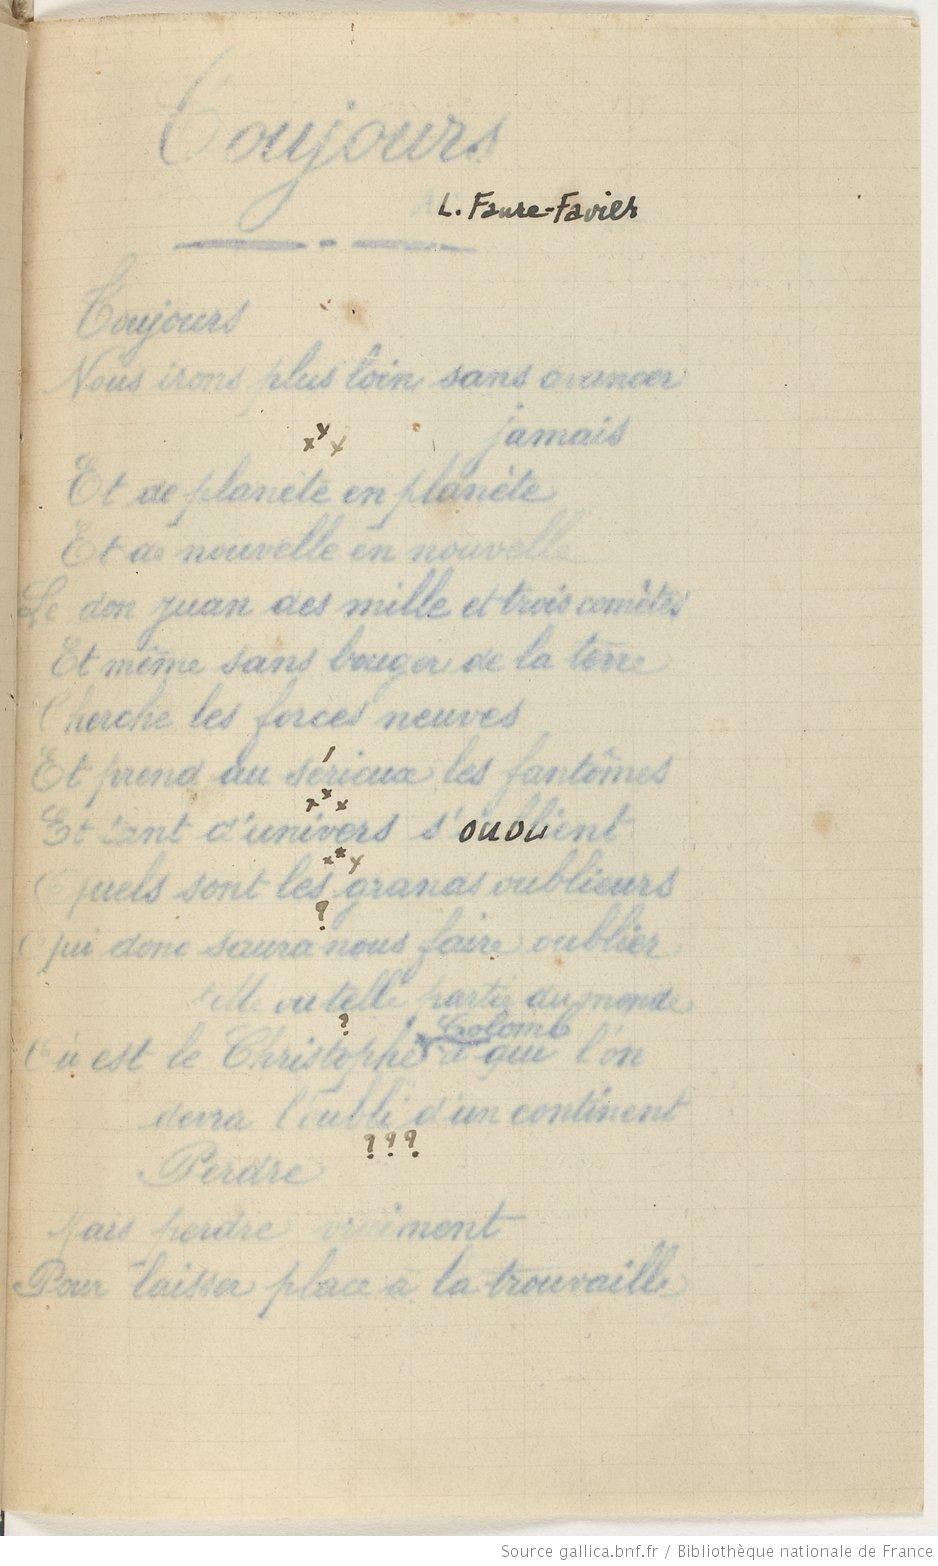 Toujours
L. Faure-Favier
Toujours
Nous irons plus loin sans avancer
jamais
Et de planète en planète
Et de nouvelle en nouvelle
Le don juan des mille et trois comètes
Et même sans bouger de la terre
Cherche les forces neuves
Et prend au sérieux les fantômes
Et tant d'univers s'oublient
Quels sont les grands oublieurs
Qui donc saura nous faire oublier
telle ou telle partie du monde
Colomb
Ou est le Christophe à qui l'on
devra l'oubli d'un continent
???
Perdre
Mais perdre vraiment
Pour laisser place à la trouvaille
Source gallica.bnf.fr / Bibliothèque nationale de France